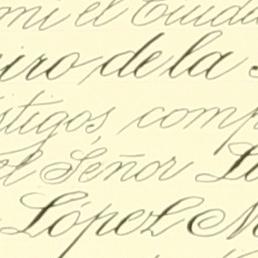 mi el Ciuda
uro de la
stigos, comp
el Señor Lo
López M